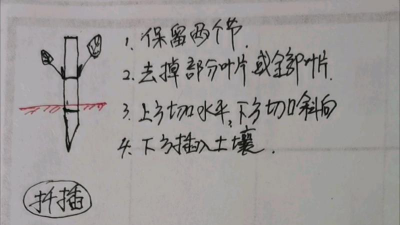 1. 保留两个节.
2. 去掉部分叶片或全部叶片.
3. 上方切口水平,下方切口斜向
4. 下方插入土壤.
扦插